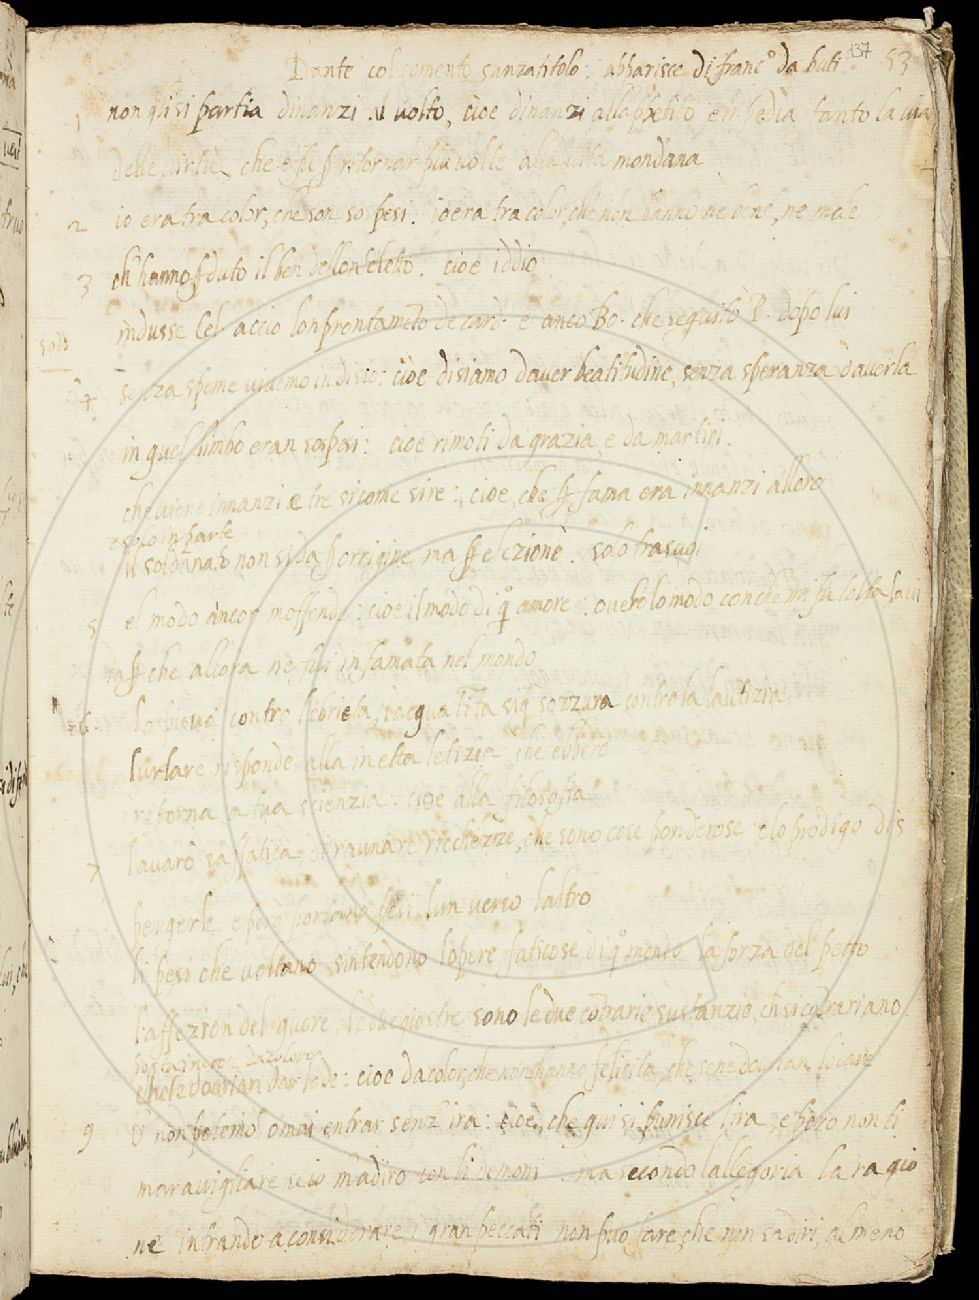 137 53
Dante col comento sanza titolo. apparisce di franc.o da buti
1 non mi si partia dinanzi al volto, cioe dinanzi all appetito e impedia tanto la via
delle virtù, che e fu p ritornar piu volte alla vita mondana
2 io era tra color, che son sospesi. io era tra color, che non hanno ne bene, ne male
3 ch hanno pduto il ben dello ntelletto. cioe iddio
indusse Cel accio lonfrontameto de card. e anco Bo. che seguitò P. dopo lui
4 senza speme vivemo in disio: cioe disiamo d aver beatitudine, senza speranza d averla
in quel limbo eran sospesi: cioe rimoti da grazia, e da martiri.
che viene innanzi a tre si come sire: cioe, che p fama era innanzi alloro
e solo in parte
il soldana.o non si da p origine ma p elezione. solo tra suoi
5 el modo ancor m offende: cioe il modo di q.o amore: overo lo modo con che mi fu tolta la vi
ta p che allora ne fui infamata nel mondo
6. La piova contro l ebrieta, l acqua tita sig. sozzura contro la lautizia
l urlare risponde alla inetta letizia, che ebbero
ritorna a tua scienzia: cioe alla filosofia
7 l avaro s affatica di raunare ricchezze, che sono cose ponderose e lo prodigo dis
pergerle e pero portano pesi l un verso l altro
li pesi che voltano s intendono l opere faticose di q.o mondo la forza del petto
l affezion del quore le due giostre sono le due cotrarie sustanzie, ch si cotrariano
che le dovrian dar lode: cioe da color, che non hanno felicita, che se ne dovrian lodare
9 ù non potemo omai entrar senz ira: cioe, che qui si punisce l ira, e pero non ti
maravigliare se io m adiro con li demoni ma secondo l allegoria la ragio
ne intrando a considerare i gran peccati non può fare, che non s adiri, almeno